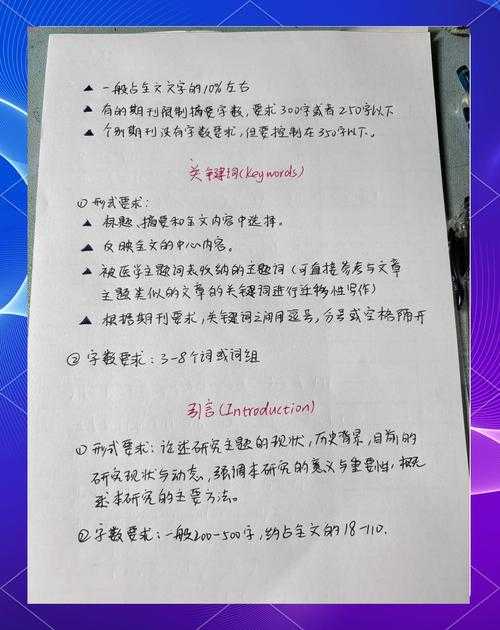 ▲ 一般占全文文字的10%左右
▲ 有的期刊限制摘要字数,要求300字或者250字以下
▲ 个别期刊没有字数要求,但要控制在350字以下。
关键词(Keywords)
① 形式要求:
▲ 标题、摘要和全文内容中选择。
▲ 反映全文的中心内容。
▲ 被医学主题词表收纳的主题词(可直接参考与文章
主题类似的文章的关键词进行迁移性写作)
▲ 根据期刊要求,关键词之间用逗号,分号或空格隔开
② 字数要求:3-8个词或词组
引言(Introduction)
① 形式要求:论述研究主题的现状,历史背景,目前的
研究现状与动态,强调本研究的意义与重要性,概
述本研究的主要方法。
② 字数要求:一般200-500字,约占全文的